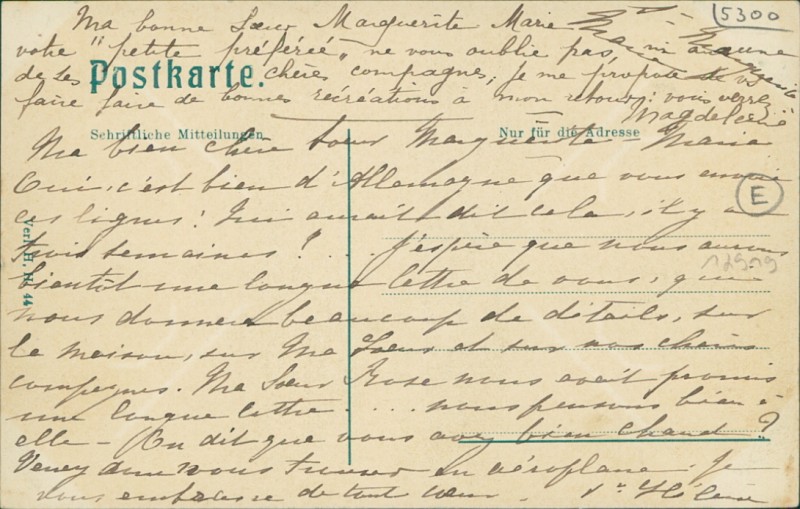 5300
Ma bonne Sœur Marguerite Marie
votre "petite préférée", ne vous oublie pas, ni aucune
de ses chères compagnes; je me propose de vs
faire faire de bonnes récréations à mon retour: vous verrez
Magdeleine
Postkarte.
Schriftliche Mitteilungen
Nur für die Adresse
Ma bien chère Sœur Marguerite-Marie
Oui, c'est bien d'Allemagne que vous envoie
ces lignes! Qui aurait dit cela, il y a
trois semaines? ... J'espère que nous aurons
bientôt une longue lettre de vous, qui
nous donnera beaucoup de détails, sur
la maison, sur Ma Sœur et sur nos chères
compagnes. Ma Sœur Rose nous avait promis
une longue lettre .... nous pensons bien à
elle - On dit que vous avez bien chaud?
Venez donc nous trouver en aéroplane. Je
vous embrasse de tout cœur. Sr Hélène
E
12919
Verl. H. H. 44